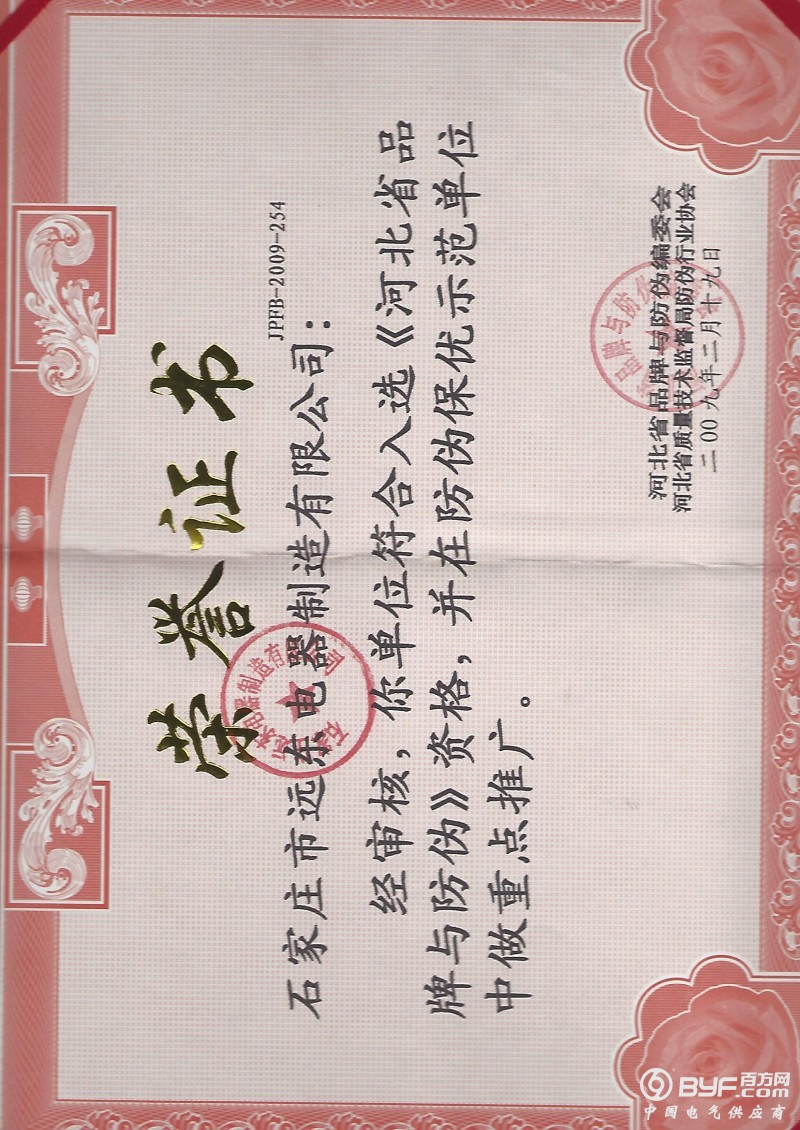 荣誉证书
JPFB-2009-254
石家庄市远东电器制造有限公司：
经审核，你单位符合入选《河北省品
牌与防伪》资格，并在防伪保优示范单位
中做重点推广。
河北省品牌与防伪编委会
河北省质量技术监督局防伪行业协会
二00九年二月十九日
BYF百方网
.com
中国电气供应商